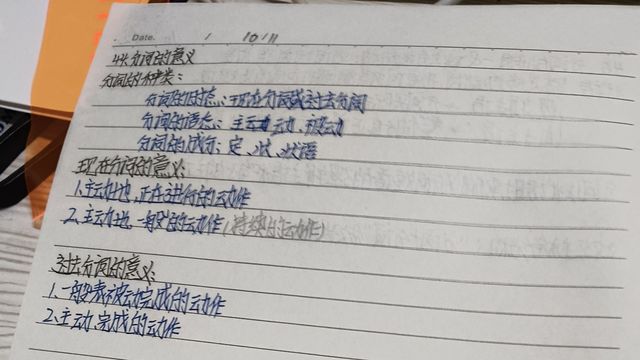 Date. / 10/11
4长分词的意义
分词的种类:
分词的时态:现在分词或过去分词
分词的语态:主动、被动
分词的成分:定、状、状语
现在分词的意义:
1、主动地,正在进行的动作
2、主动地,一般的动作(持续的动作)
过去分词的意义:
1、一般表被动完成的动作
2、主动、完成的动作